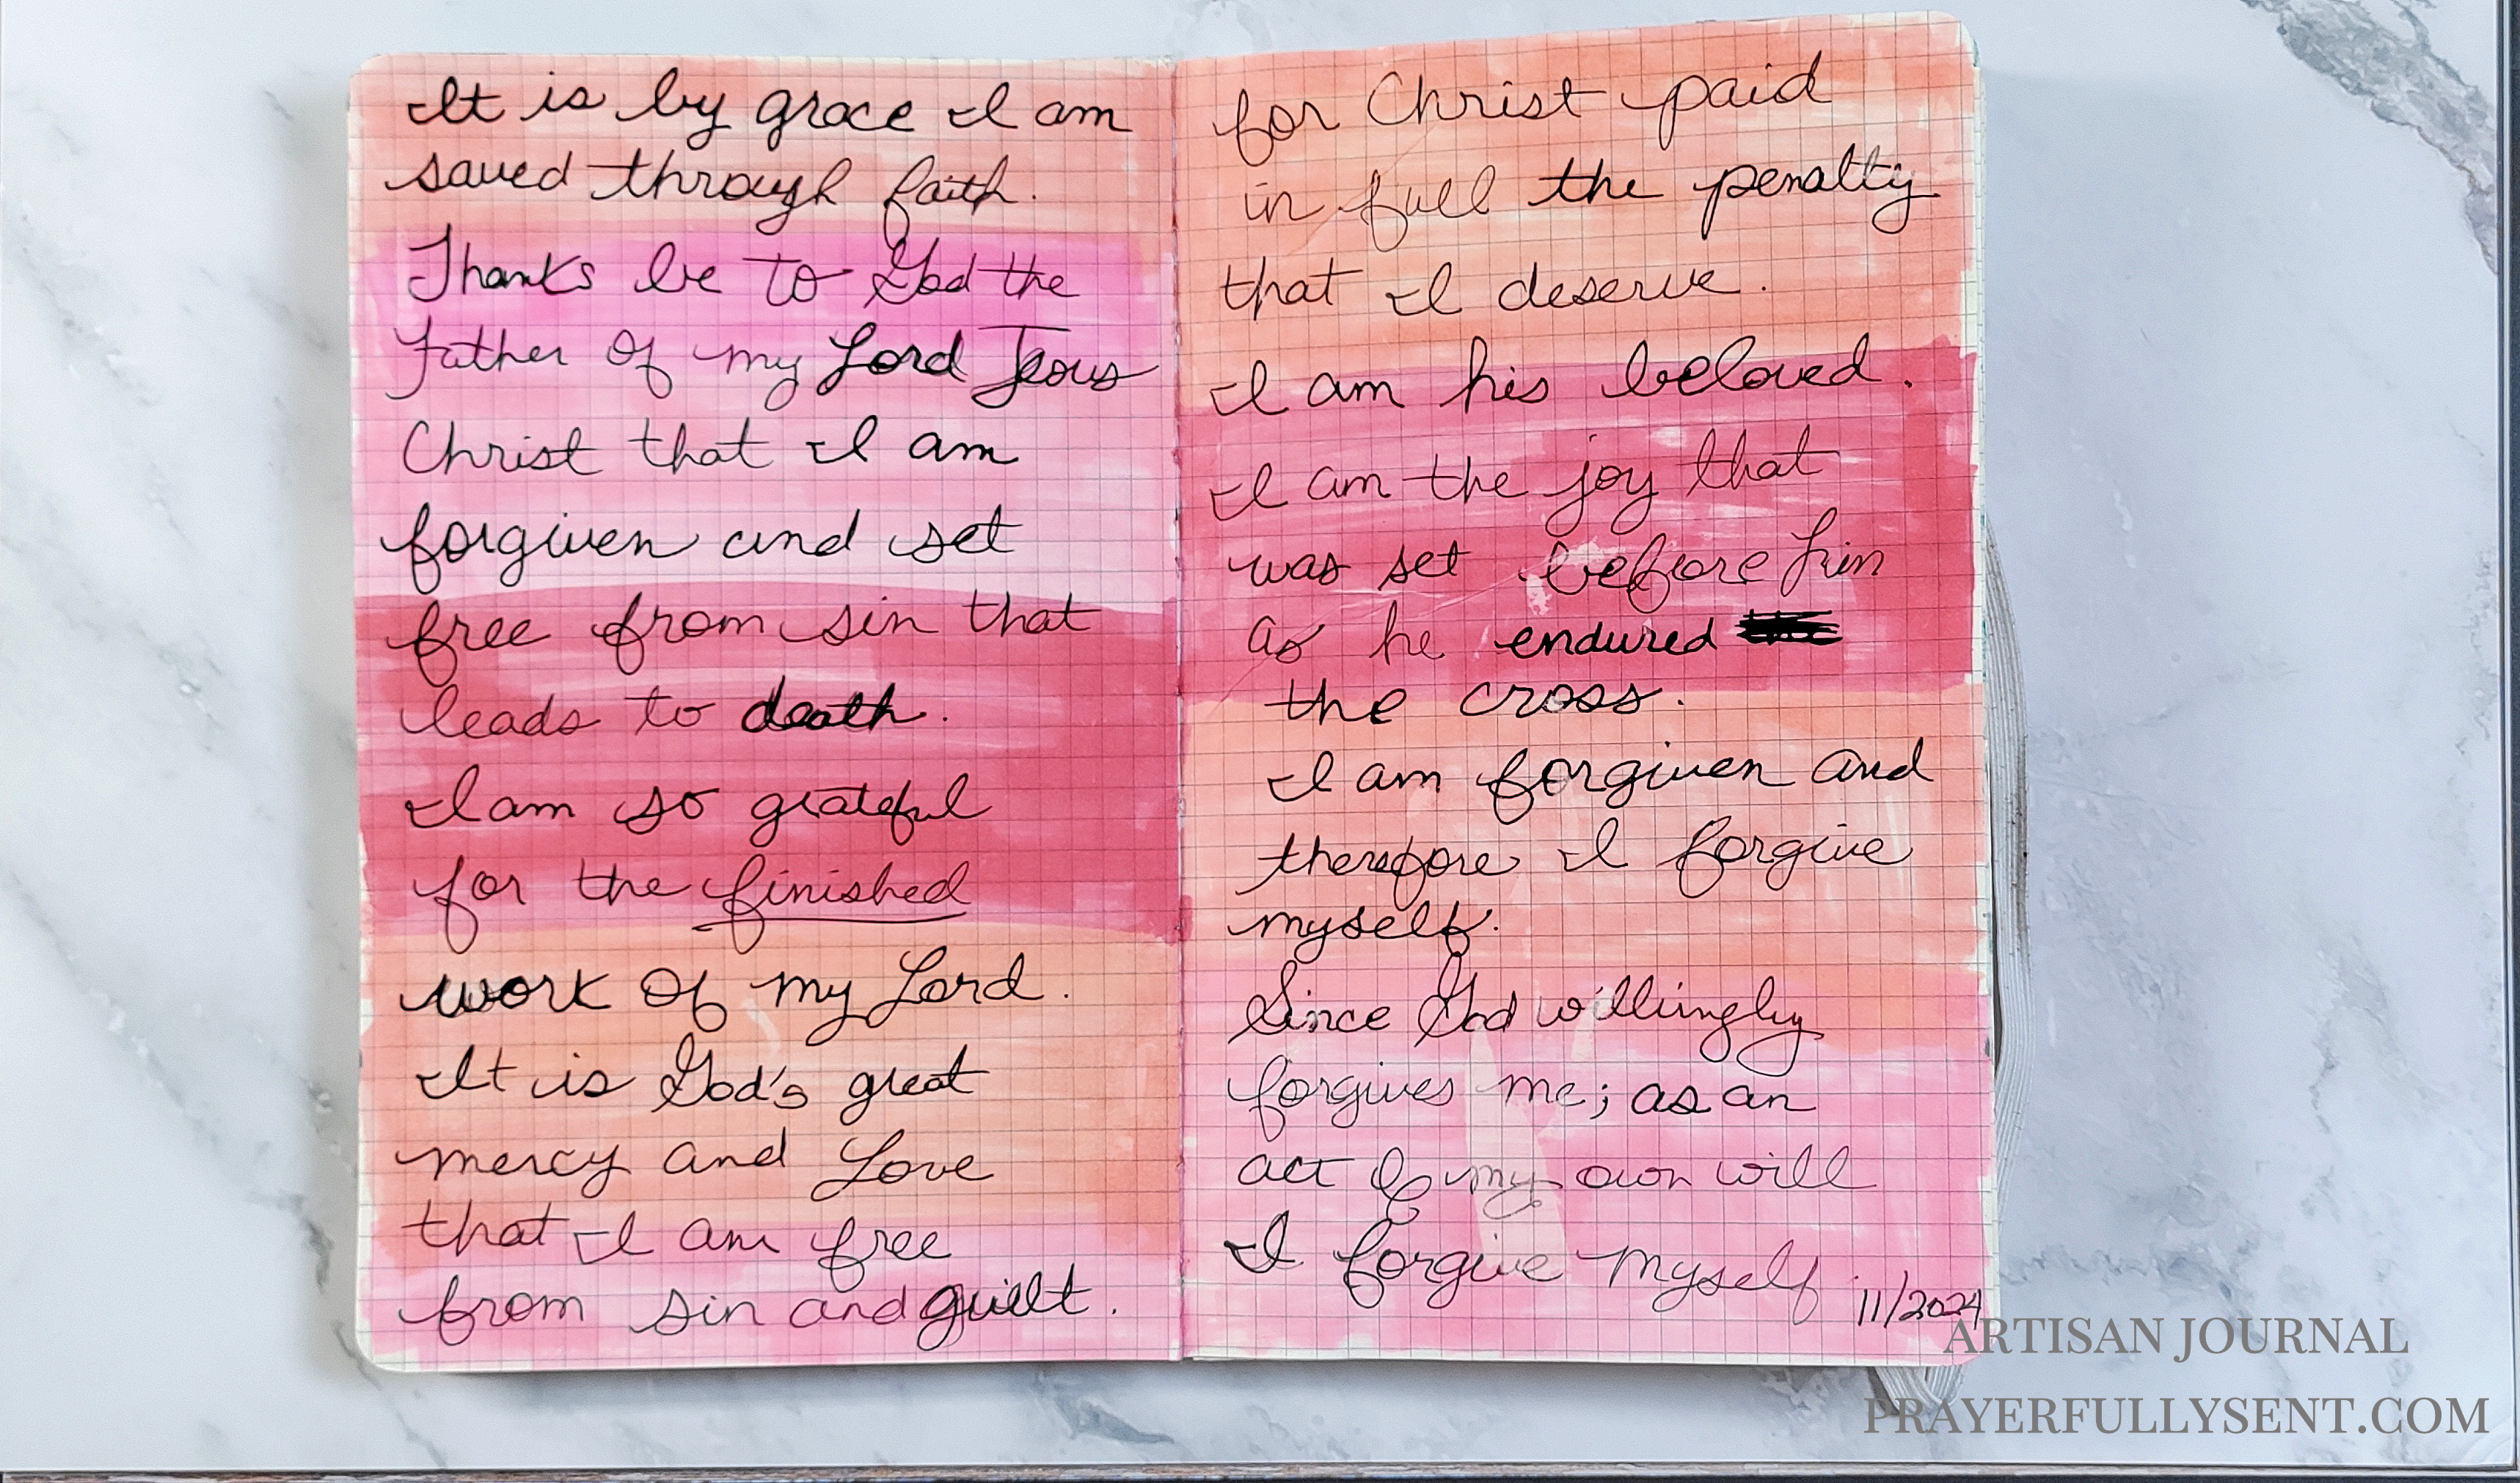 It is by grace I am
saved through faith.
Thanks be to God the
Father of my Lord Jesus
Christ that I am
forgiven and set
free from sin that
leads to death.
I am so grateful
for the finished
work of my Lord.
It is God's great
mercy and Love
that I am free
from sin and guilt.
for Christ paid
in full the penalty
that I deserve.
I am his beloved.
I am the joy that
was set before him
as he endured
the cross.
I am forgiven and
therefore I forgive
myself.
Since God willingly
forgives me; as an
act of my own will
I forgive myself
11/2024
ARTISAN JOURNAL
PRAYERFULLYSENT.COM